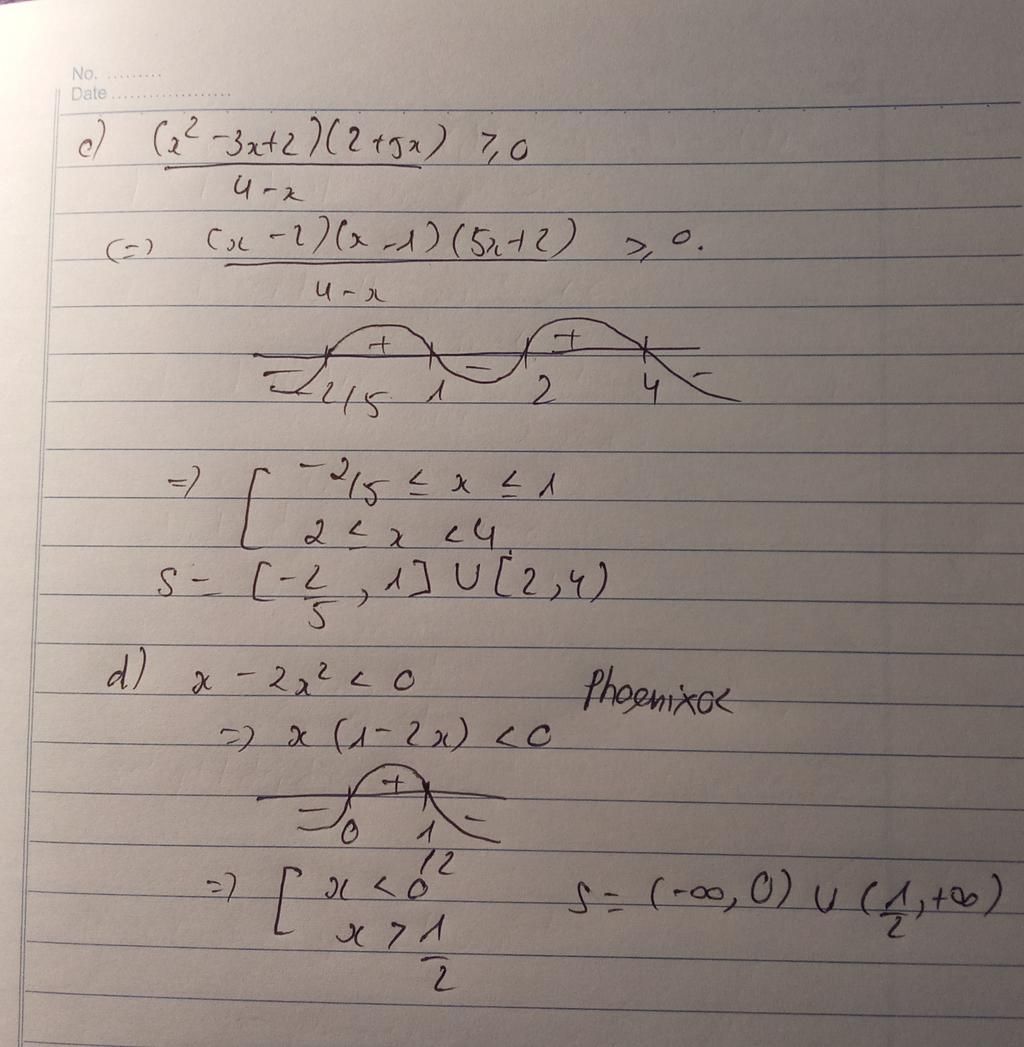 No. .........
Date ..................
c) (x² -3x+2)(2+5x) ≥ 0
4-x
(=) (x-2)(x-1)(5x+2) ≥ 0.
4-x
+ +
- - -
-2/5 1 2 4
=> [ -2/5 ≤ x ≤ 1
2 ≤ x < 4.
S = [-2/5, 1] ∪ [2, 4)
d) x - 2x² < 0
Phoenixac
=> x(1-2x) < 0
+
- -
0 1/2
=> [ x < 0
x > 1/2
S = (-∞, 0) ∪ (1/2, +∞)